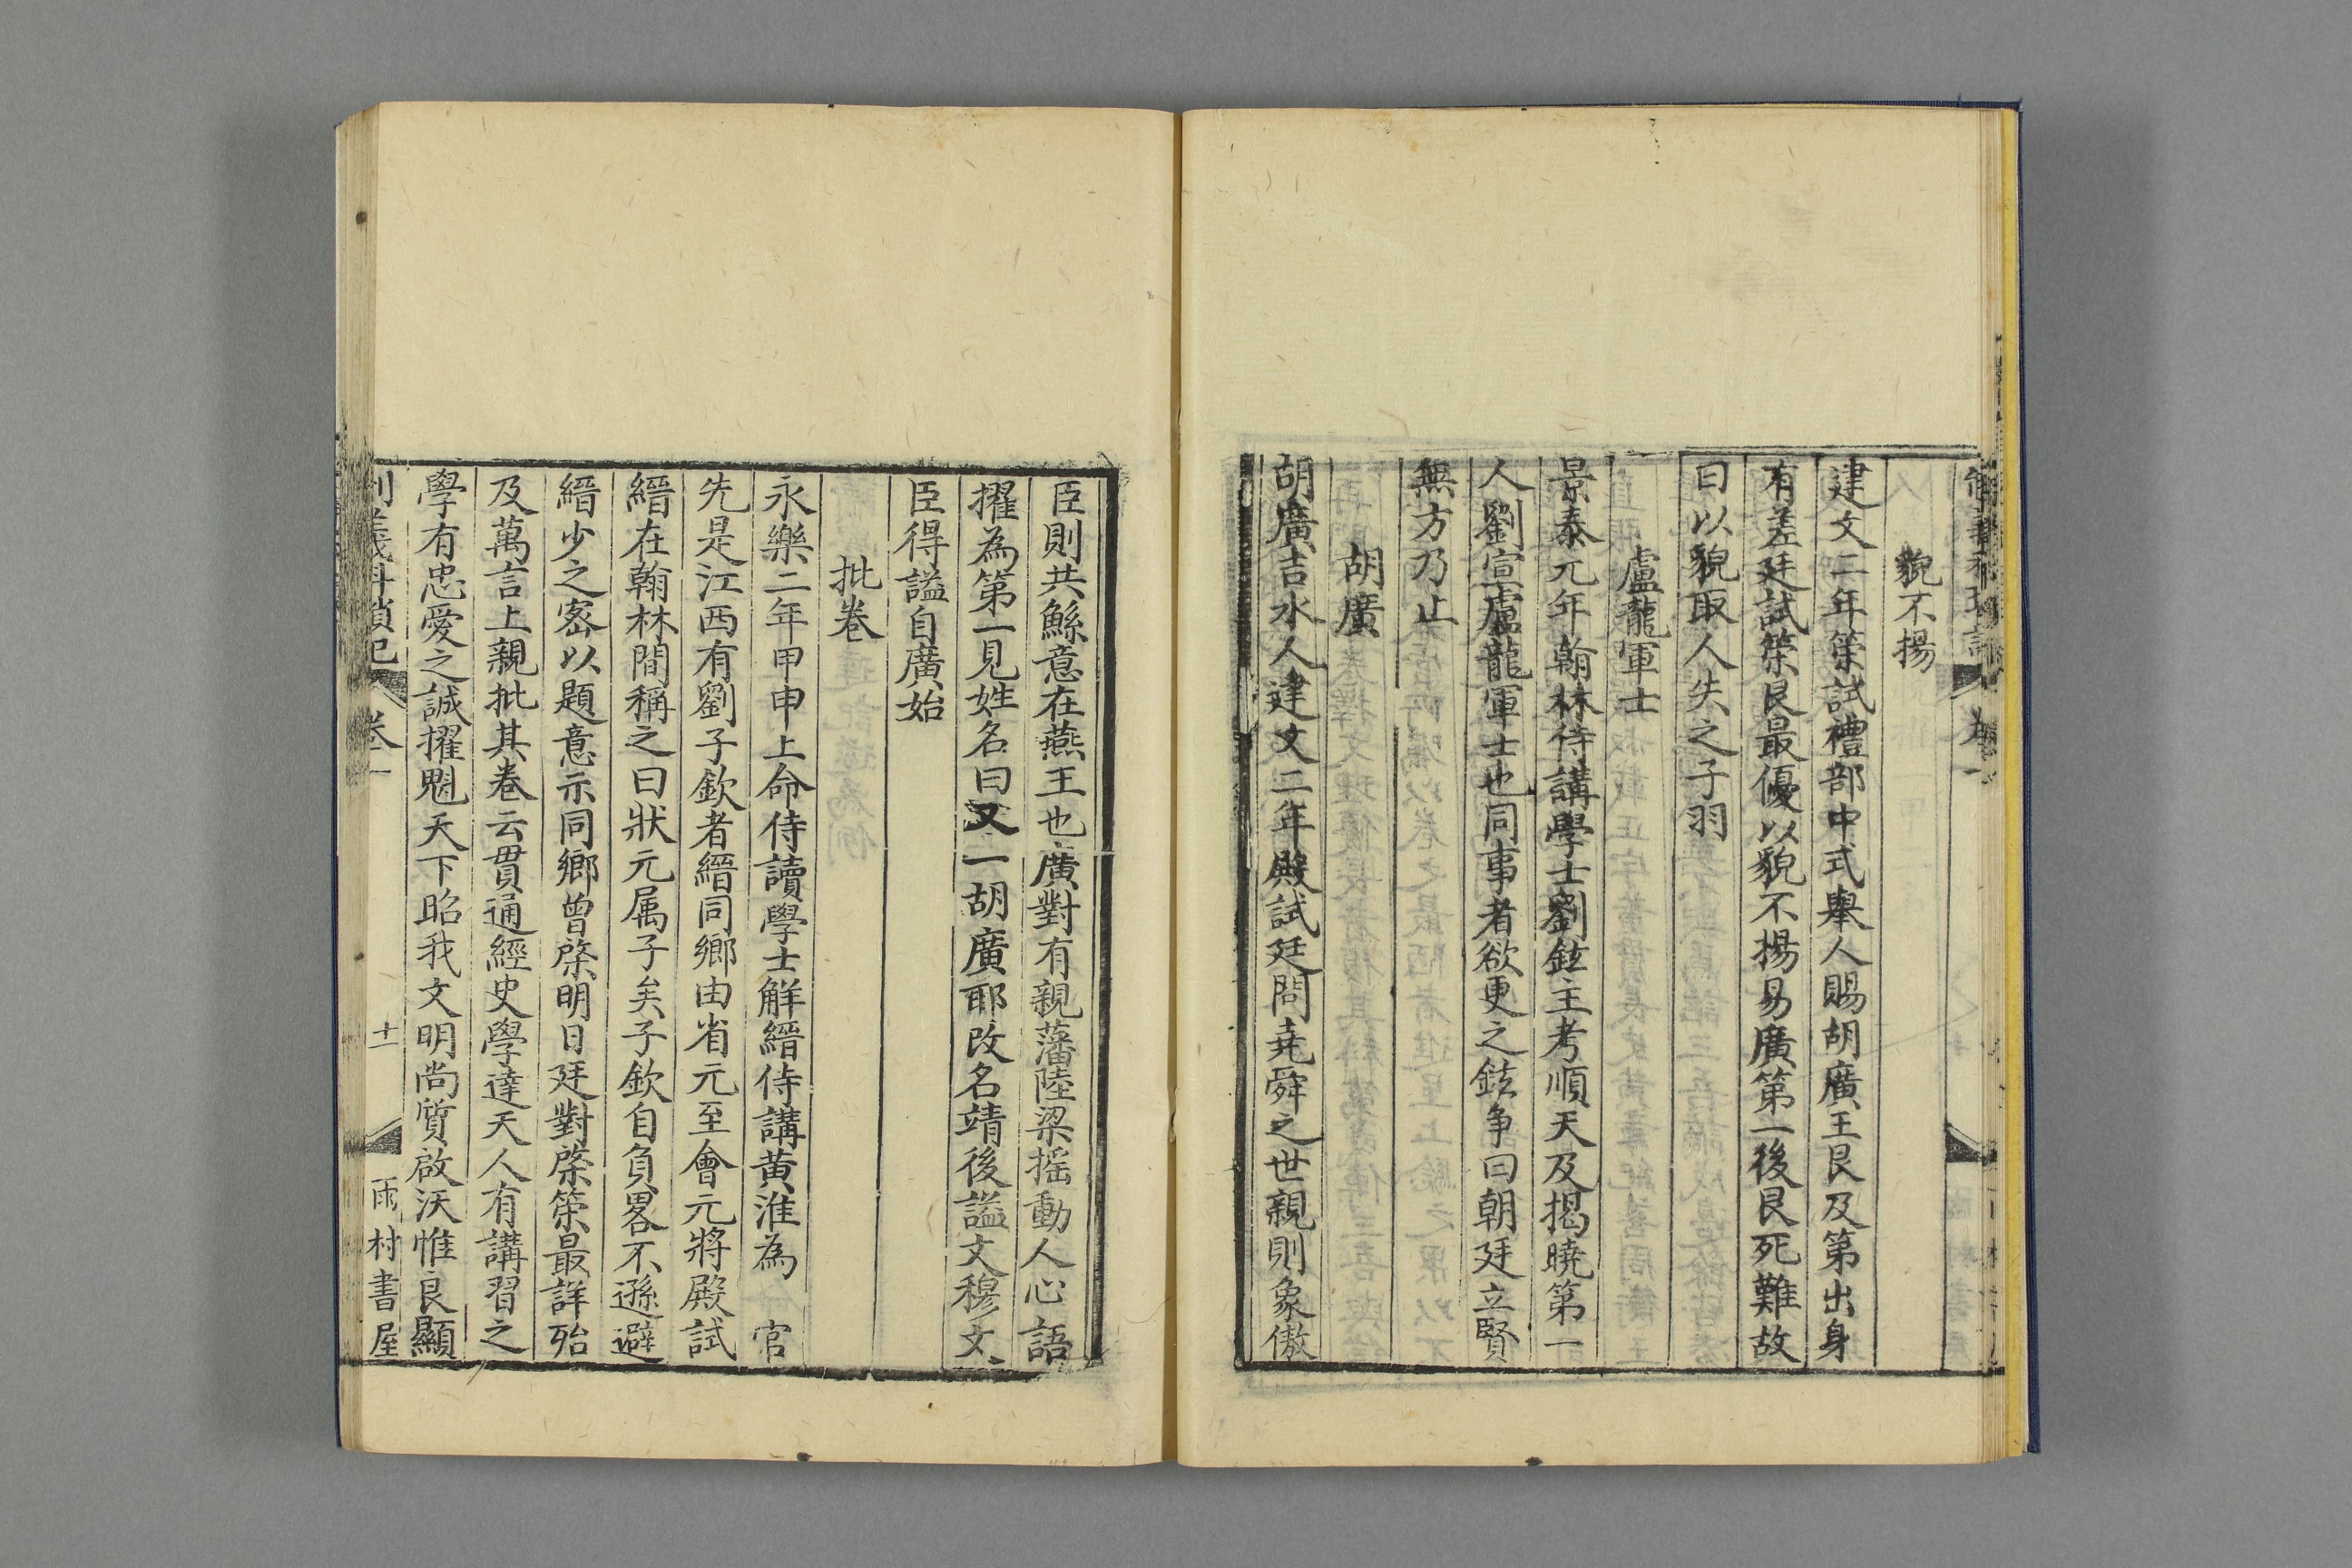 貌不揚
建文二年策試禮部中式舉人賜胡廣王艮及第出身
有差廷試策艮最優以貌不揚易廣第一後艮死難故
曰以貌取人失之子羽
盧龍軍士
景泰元年翰林侍講學士劉鉉主考順天及揭曉第一
人劉宣盧龍軍士也同事者欲更之鉉争曰朝廷立賢
無方乃止
胡廣
胡廣吉水人建文二年殿試廷問堯舜之世親則象傲
臣則共鯀意在燕王也廣對有親藩陸梁摇動人心語
擢為第一見姓名曰又一胡廣耶改名靖後謚文穆文
臣得謚自廣始
批卷
永樂二年甲申上命侍讀學士解縉侍講黄淮為官
先是江西有劉子欽者縉同鄉由省元至會元將殿試
縉在翰林間稱之曰狀元属子矣子欽自負畧不遜避
縉少之密以題意示同鄉曾棨明日廷對棨策最詳殆
及萬言上親批其卷云貫通經史學達天人有講習之
學有忠愛之誠擢魁天下昭我文明尚質啟沃惟良顯
制義科瑣記 卷一 十一 雨村書屋